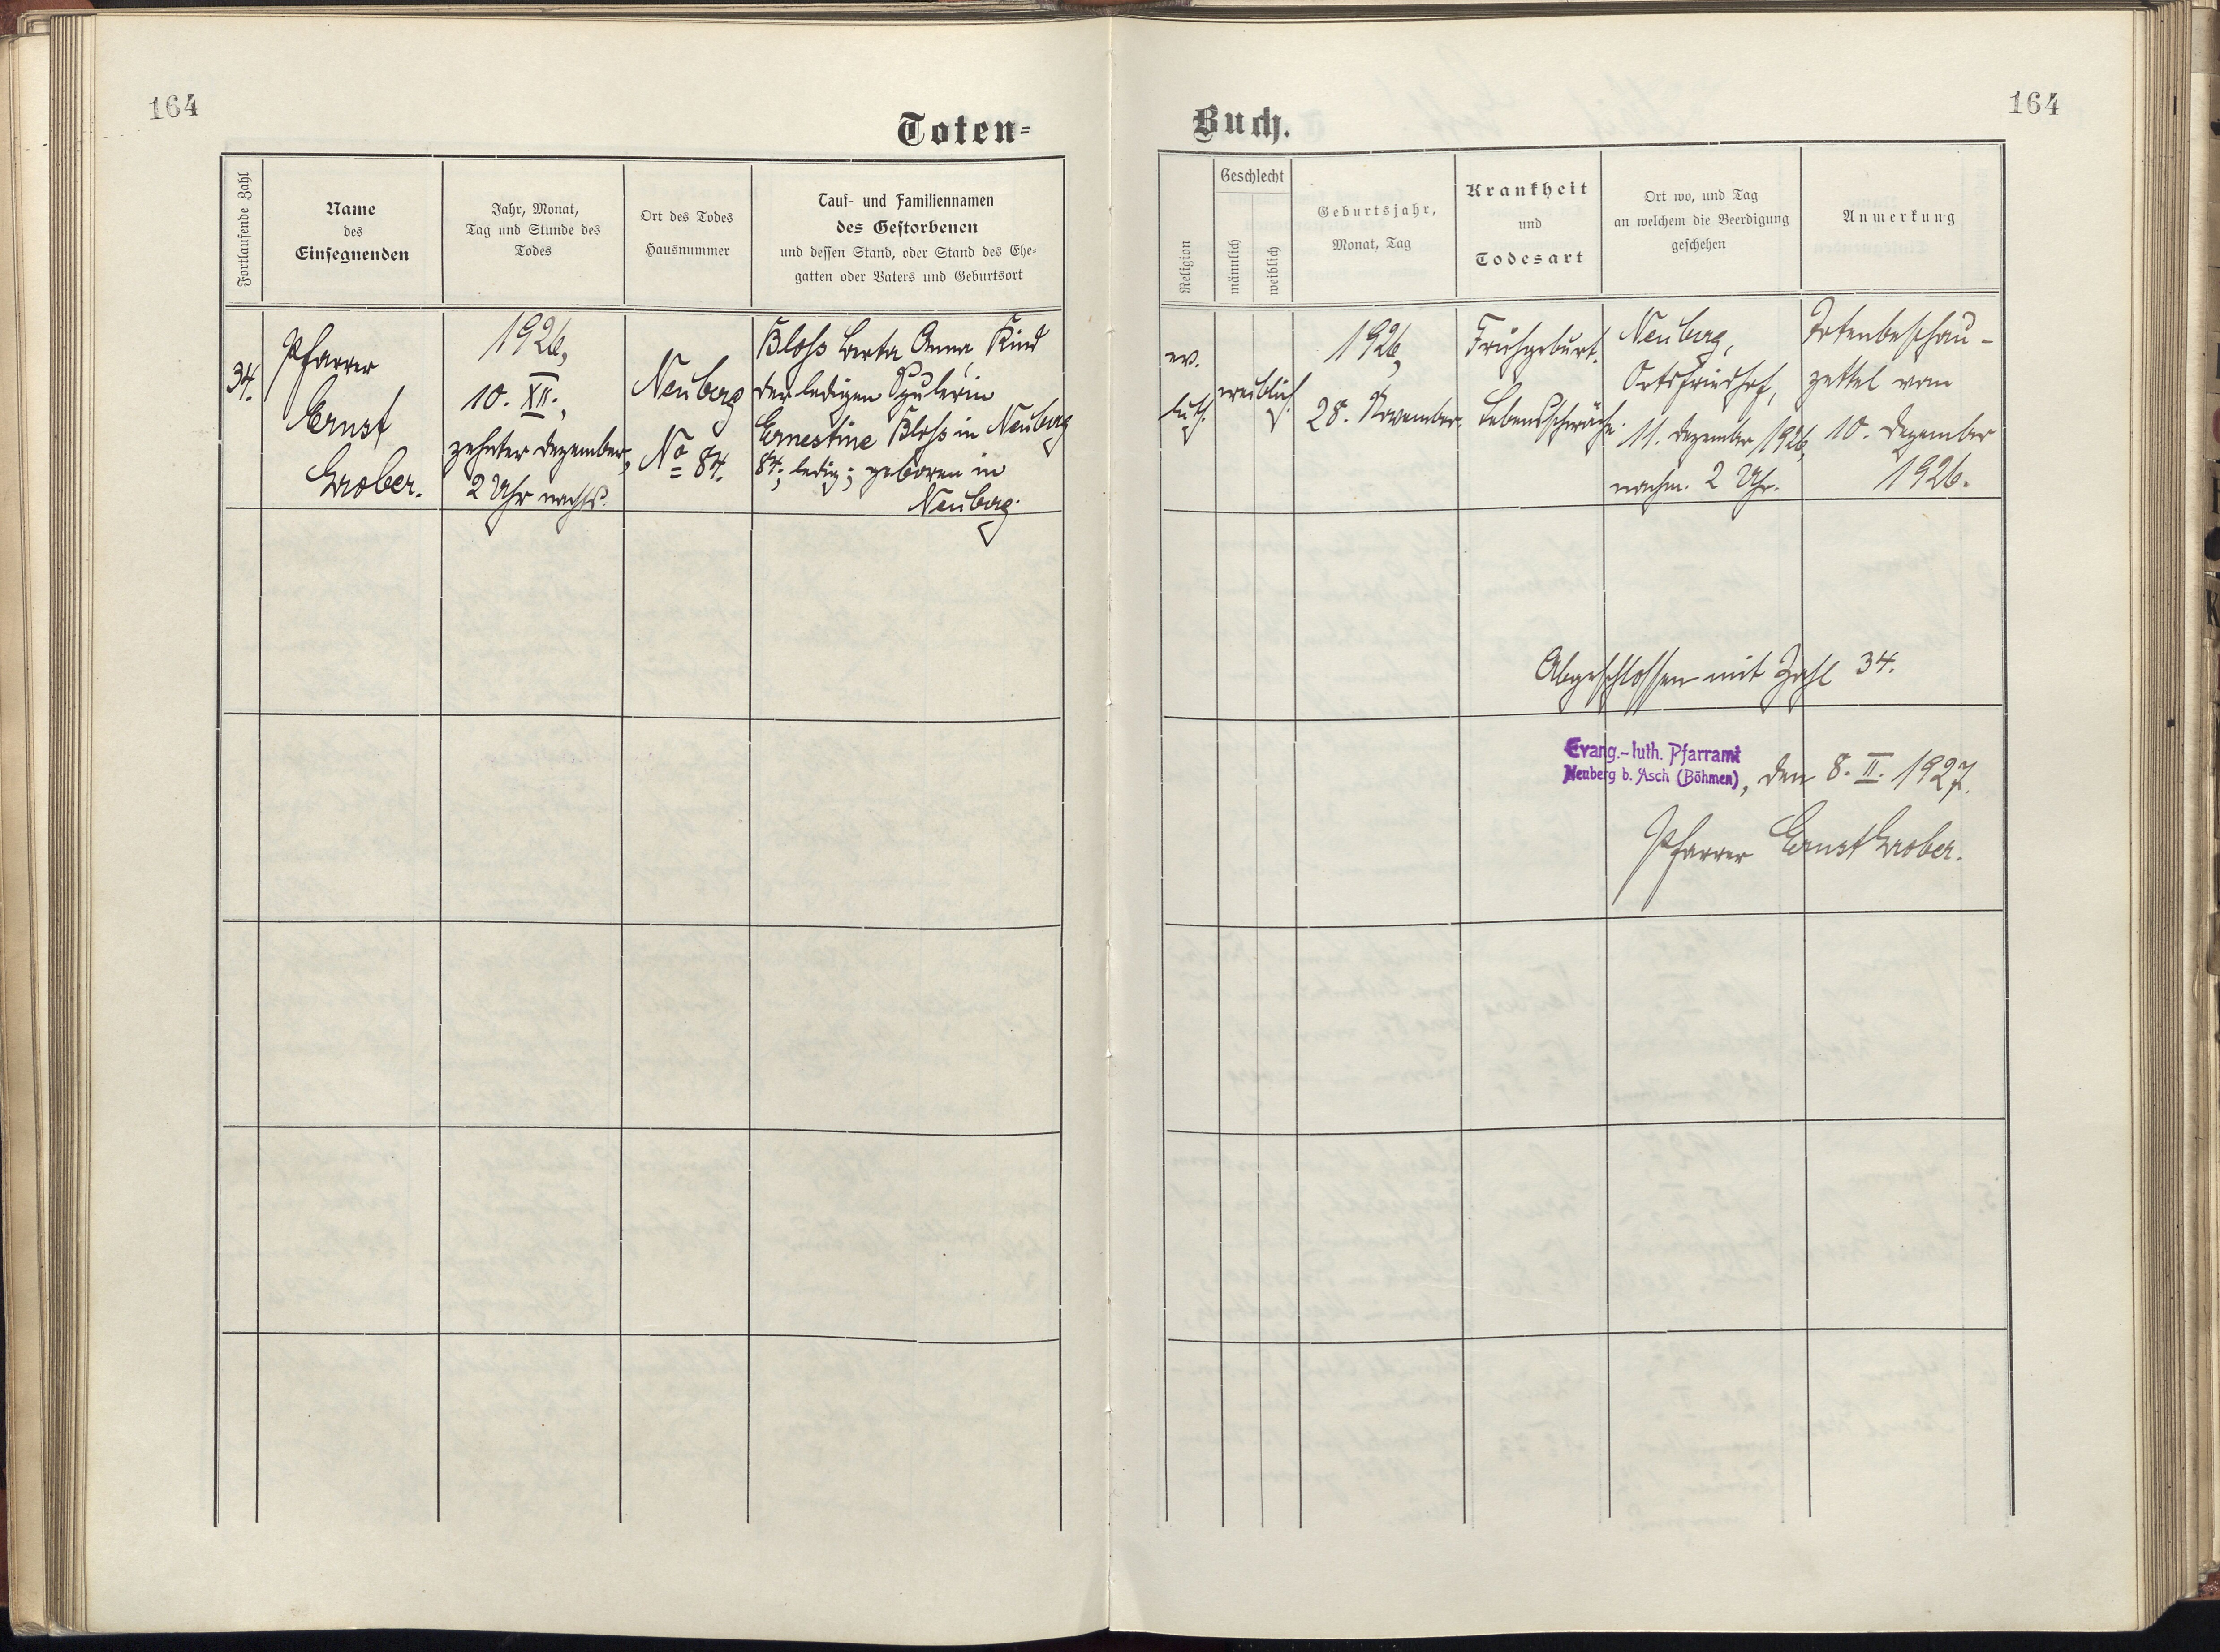 164
Toten-
Fortlaufende Zahl
Name
des
Einsegnenden
Jahr, Monat,
Tag und Stunde des
Todes
Ort des Todes
Hausnummer
Tauf- und Familiennamen
des Gestorbenen
und dessen Stand, oder Stand des Ehe-
gatten oder Vaters und Geburtsort
34.
Pfarrer
Ernst
Grober.
1926,
10. XII.,
zehnter Dezember,
2 Uhr nachts.
Neuberg
No 84.
Bloß Berta Anna, Kind
der ledigen Spulerin
Ernestine Bloß in Neuberg
84; ledig; geboren in
Neuberg.
164
Buch.
Religion
Geschlecht
männlich
weiblich
Geburtsjahr,
Monat, Tag
Krankheit
und
Todesart
Ort wo, und Tag
an welchem die Beerdigung
geschehen
Anmerkung
ev.
luth.
weiblich.
1926,
28. November.
Frühgeburt.
Lebensschwäche.
Neuberg,
Ortsfriedhof,
11. Dezember 1926,
nachm. 2 Uhr.
Totenbeschau-
zettel vom
10. Dezember
1926.
Abgeschlossen mit Zahl 34.
Evang.-luth. Pfarramt
Neuberg b. Asch (Böhmen), den 8. II. 1927.
Pfarrer Ernst Grober.